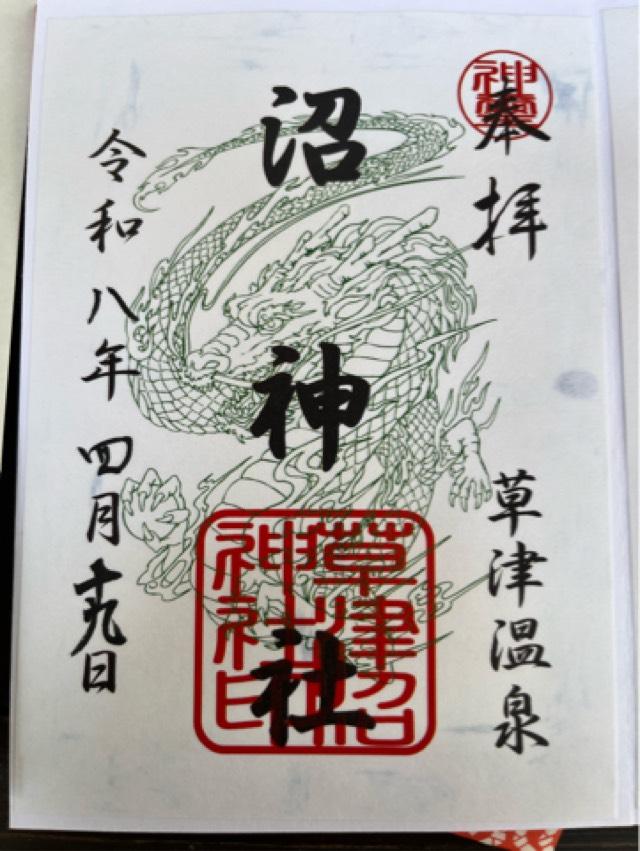 奉拝
草津温泉
沼神社
令和八年四月十九日
草津沼
神社印